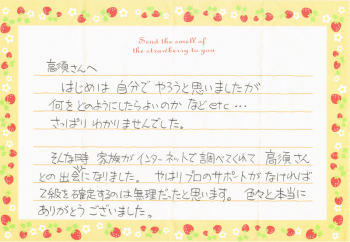 Send the smell of
the strawberry to you
高須さんへ
はじめは 自分で やろうと思いましたが
何を どのようにしたらよいのか など etc…
さっぱり わかりませんでした。
そんな時 家族が インターネットで 調べてくれて 高須さん
との 出会いになりました。 やはり プロのサポートが なければ
2級を確定するのは 無理だったと思います。 色々と本当に
ありがとう ございました。